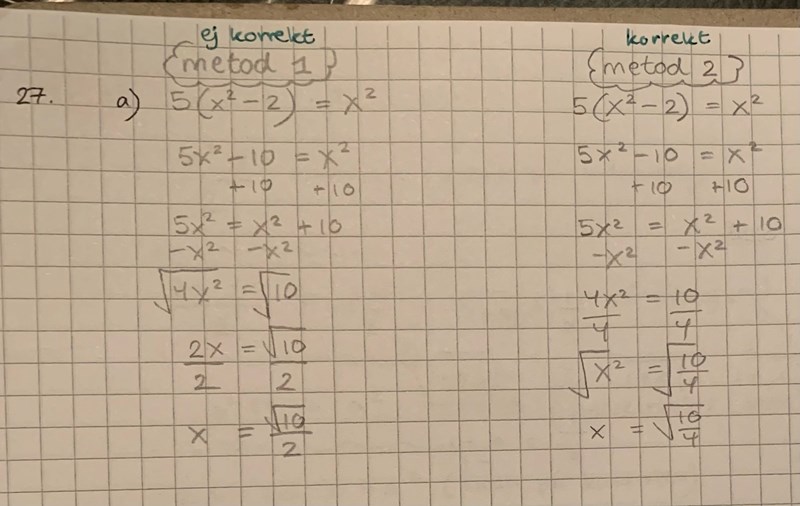 ej korrekt
{metod 1}
27. a) 5(x² − 2) = x²
5x² − 10 = x²
+10 +10
5x² = x² + 10
−x² −x²
√4x² = √10
2x/2 = √10/2
x = √10/2
korrekt
{metod 2}
5(x² − 2) = x²
5x² − 10 = x²
+10 +10
5x² = x² + 10
−x² −x²
4x²/4 = 10/4
√x² = √(10/4)
x = √(10/4)